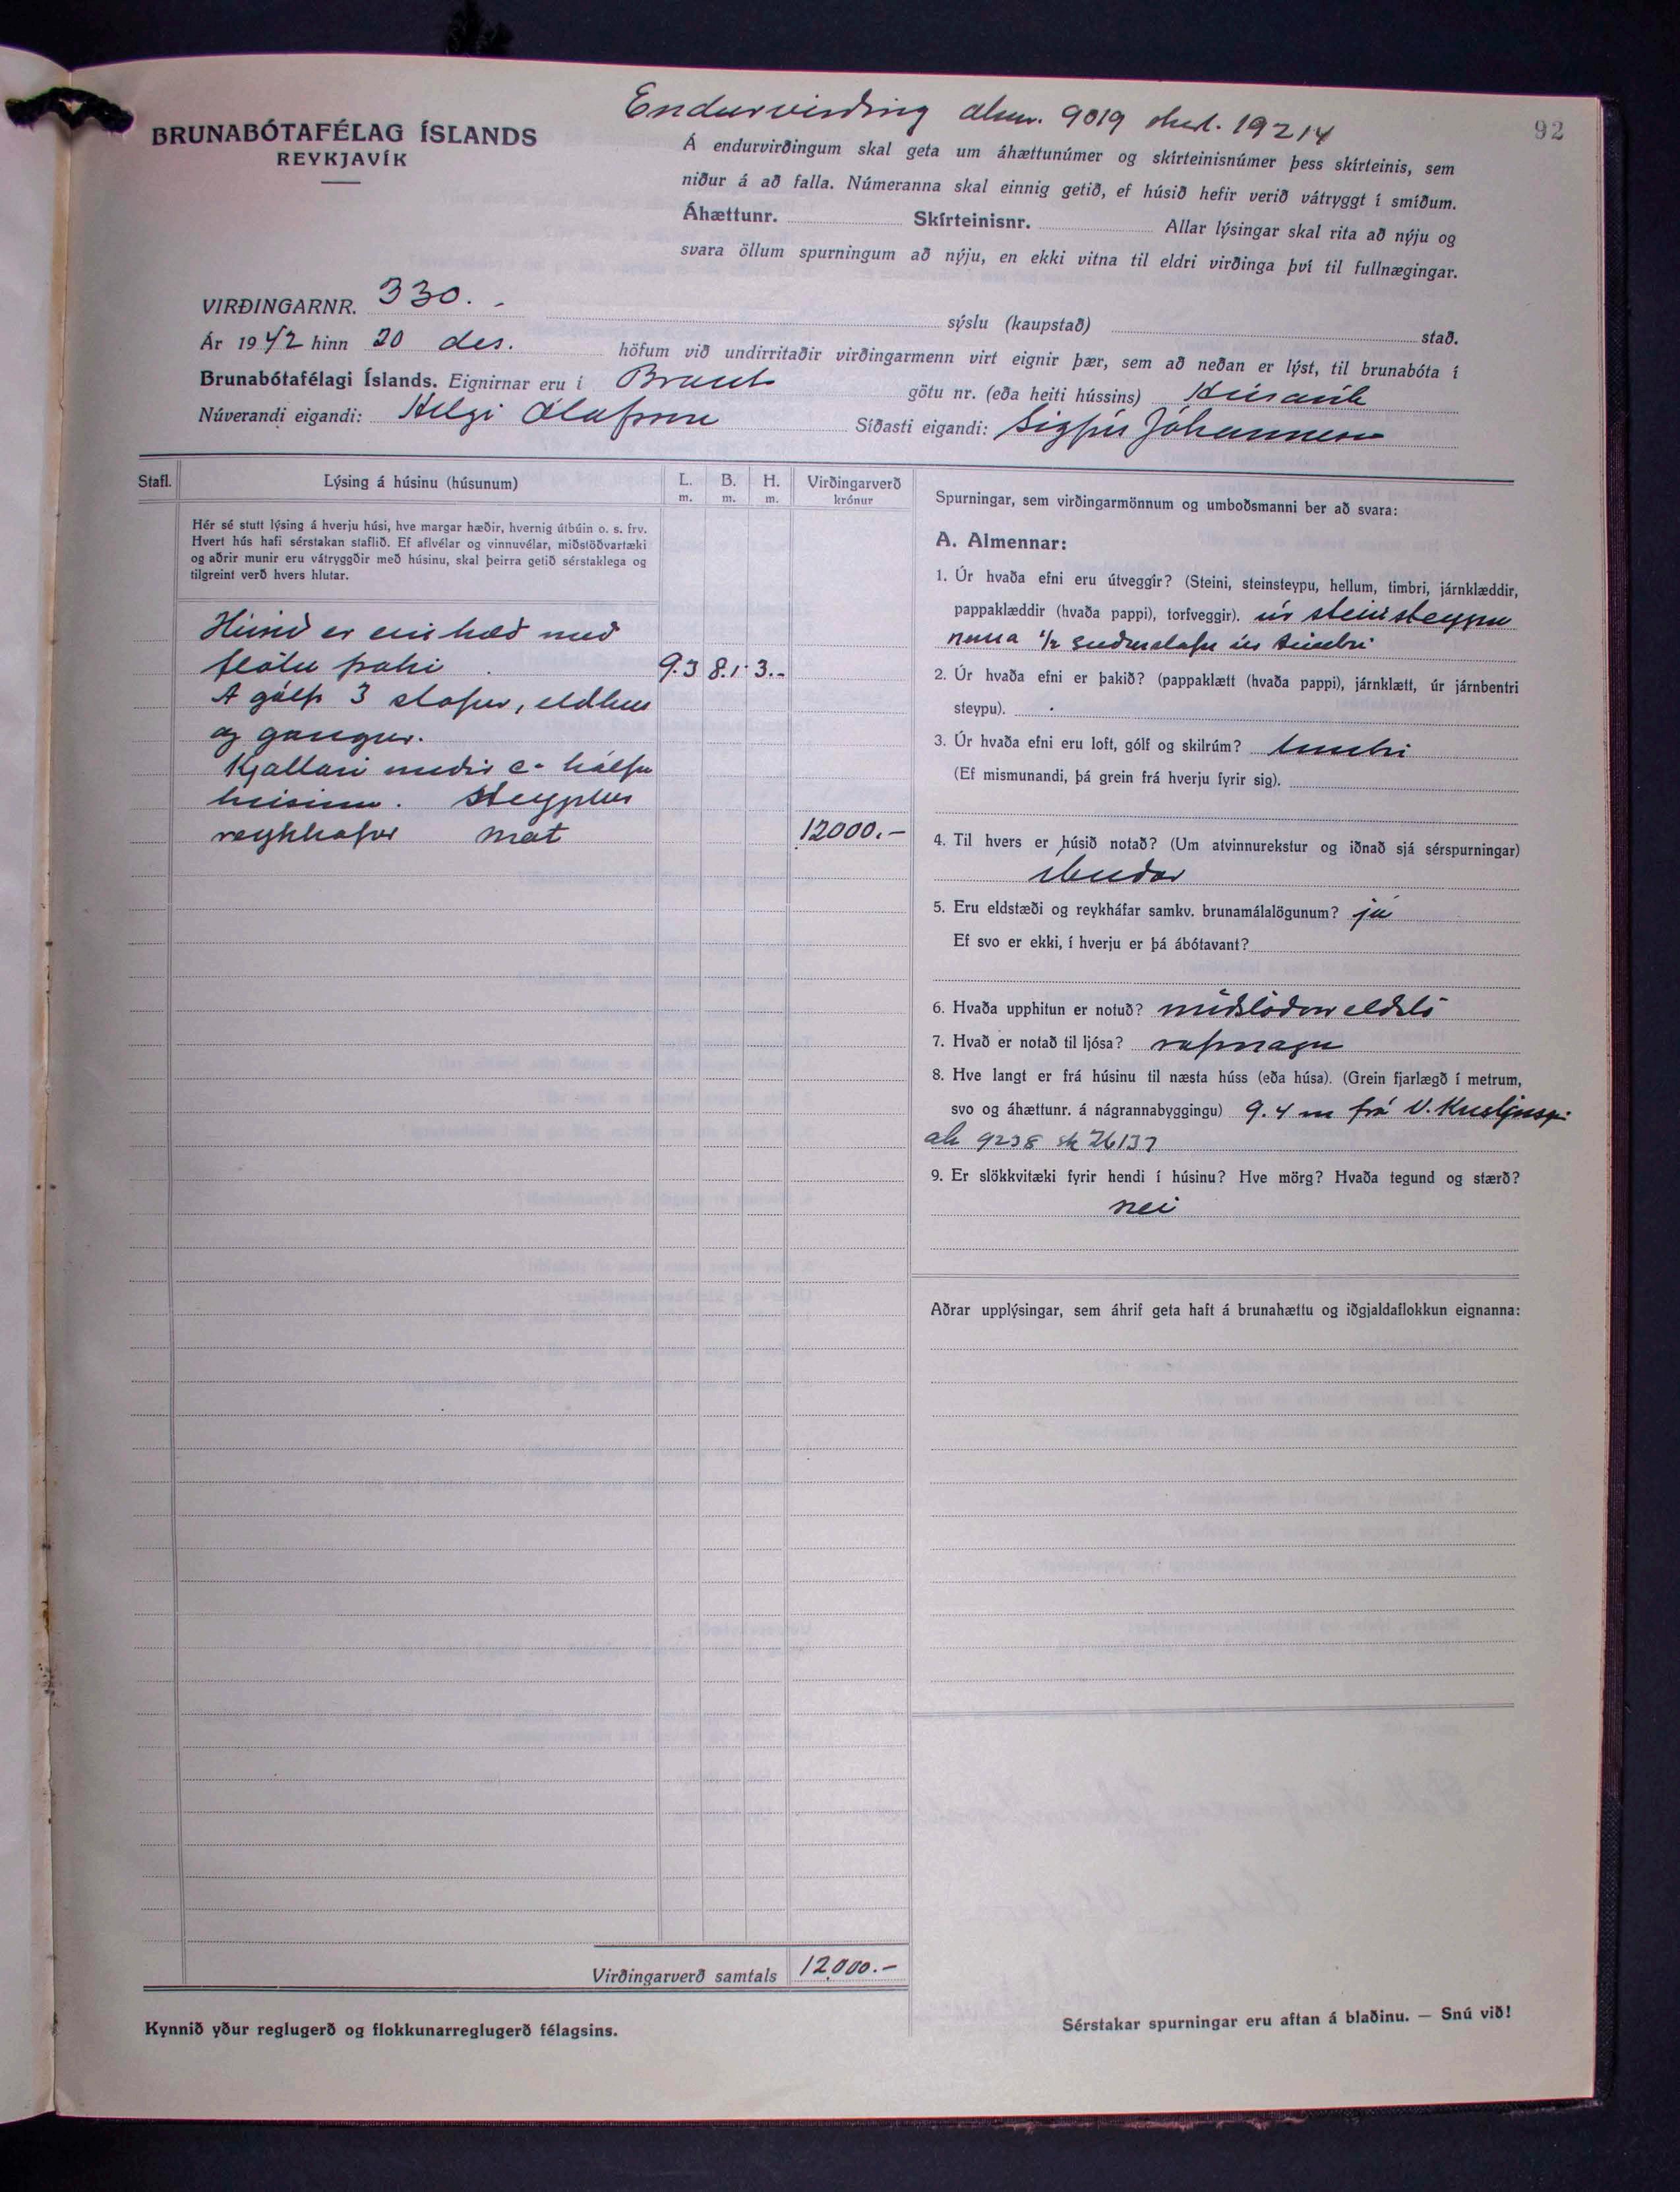 92
Endurvirðing áhnr. 9019 skrt. 19214
BRUNABÓTAFÉLAG ÍSLANDS
REYKJAVÍK
Á endurvirðingum skal geta um áhættunúmer og skírteinisnúmer þess skírteinis, sem
niður á að falla. Númeranna skal einnig getið, ef húsið hefir verið vátryggt í smíðum.
Áhættunr. Skírteinisnr. Allar lýsingar skal rita að nýju og
svara öllum spurningum að nýju, en ekki vitna til eldri virðinga því til fullnægingar.
VIRÐINGARNR. 330. - sýslu (kaupstað) stað.
Ár 1942 hinn 20 des. höfum við undirritaðir virðingarmenn virt eignir þær, sem að neðan er lýst, til brunabóta í
Brunabótafélagi Íslands. Eignirnar eru í Braut götu nr. (eða heiti hússins) Húsavík
Núverandi eigandi: Helgi Ólafsson Síðasti eigandi: Sigfús Jóhannesson
Stafl. Lýsing á húsinu (húsunum) L. m. B. m. H. m. Virðingarverð krónur
Hér sé stutt lýsing á hverju húsi, hve margar hæðir, hvernig útbúin o. s. frv.
Hvert hús hafi sérstakan staflið. Ef aflvélar og vinnuvélar, miðstöðvartæki
og aðrir munir eru vátryggðir með húsinu, skal þeirra getið sérstaklega og
tilgreint verð hvers hlutar.
Húsið er ein hæð með
flötu þaki 9.3 8.1 3.-
Á gólfi 3 stofur, eldhus
og gangur.
Kjallari undir c- hálfu
húsinu. Steyptur
reykhafur mat 12000.-
Virðingarverð samtals 12.000.-
Kynnið yður reglugerð og flokkunarreglugerð félagsins.
Spurningar, sem virðingarmönnum og umboðsmanni ber að svara:
A. Almennar:
1. Úr hvaða efni eru útveggir? (Steini, steinsteypu, hellum, timbri, járnklæddir,
pappaklæddir (hvaða pappi), torfveggir). úr steinsteypu
nema 1/2 suðurstafn úr timbri
2. Úr hvaða efni er þakið? (pappaklætt (hvaða pappi), járnklætt, úr járnbentri
steypu).
3. Úr hvaða efni eru loft, gólf og skilrúm? timbri
(Ef mismunandi, þá grein frá hverju fyrir sig).
4. Til hvers er húsið notað? (Um atvinnurekstur og iðnað sjá sérspurningar)
íbuðar
5. Eru eldstæði og reykháfar samkv. brunamálalögunum? já
Ef svo er ekki, í hverju er þá ábótavant?
6. Hvaða upphitun er notuð? miðstöðvar eldstó
7. Hvað er notað til ljósa? rafmagn
8. Hve langt er frá húsinu til næsta húss (eða húsa). (Grein fjarlægð í metrum,
svo og áhættunr. á nágrannabyggingu) 9.4 m frá V.
áh 9238 sk 26137
9. Er slökkvitæki fyrir hendi í húsinu? Hve mörg? Hvaða tegund og stærð?
nei
Aðrar upplýsingar, sem áhrif geta haft á brunahættu og iðgjaldaflokkun eignanna:
Sérstakar spurningar eru aftan á blaðinu. — Snú við!